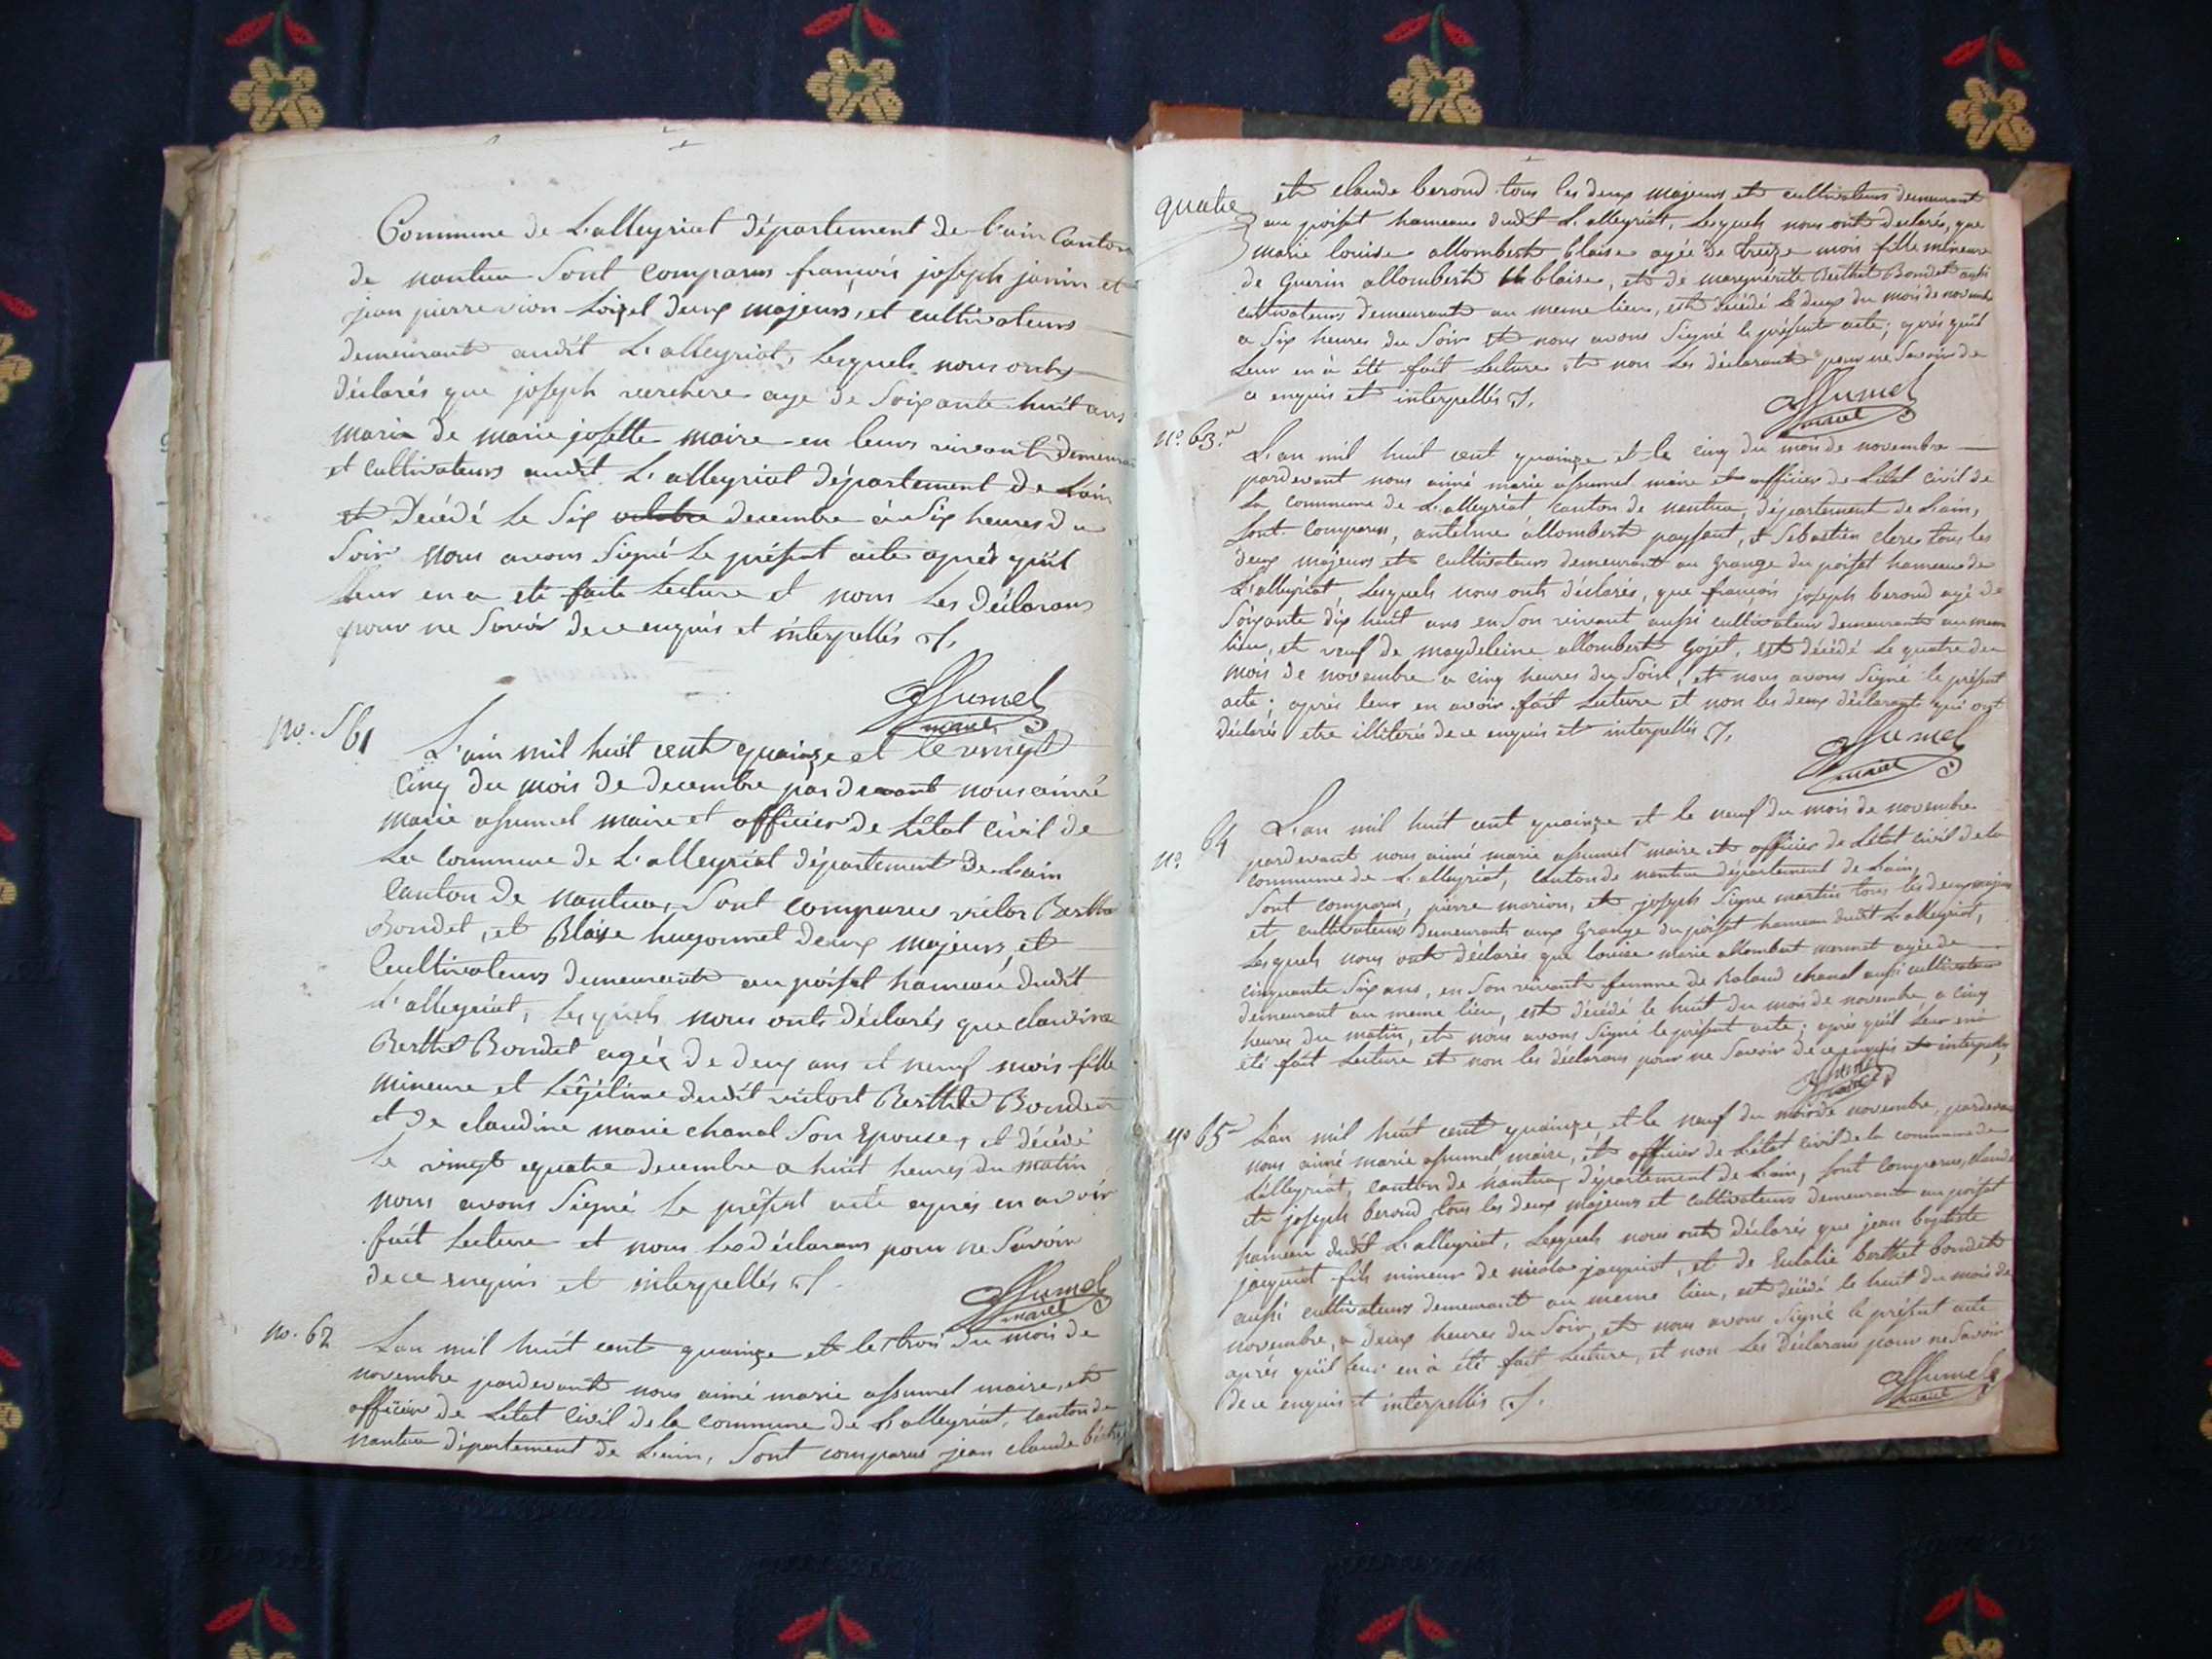 Commune de L'alleyriat département de l'ain Canton
de nantua Sont comparus françois joseph janin et
jean pierre vion loisel deux majeurs, et cultivateurs
demeurant audit L'alleyriat, lesquels nous onts
déclarés que joseph verchere age de Soixante huit ans
mari de marie josette maire en leurs vivants demeurant
et cultivateurs audit L'alleyriat département de Lain
et Décédé le Six octobre decembre à Six heures du
Soir nous avons Signé le présent acte après qu'il
leur en a été faite lecture et nons les déclarans
pour ne Savoir de ce enquis et interpellés
assumel
maire
no. 61
L'ain mil huit cent quainze et le vingt
cinq du mois de decembre par devant nous aimé
marie assumel maire et officier de L'état civil de
La commune de L'alleyriat département de Lain
Canton de nantua, Sont comparus victor Berthet
Bondet, et Blaise hugonnet deux majeurs, et
Cultivateurs demeurant au poisat hameau dudit
L'alleyriat, Lesquels nous onts déclarés que claudine
Berthet Bondet agée de deux ans et neuf mois fille
mineure et Légitime dudit victort Berthet Bondet
et de claudine marie chanal Son Epouse, et décédé
le vingt quatre decembre a huit heures du matin
nous avons Signé le présent acte après en avoir
fait Lecture et nons les déclarans pour ne Savoir
de ce enquis et interpellés
assumel
maire
no. 62
Lan mil huit cent quainze et le trois du mois de
novembre pardevant nous aimé marie assumel maire, et
officier de Létat Civil de la commune de L'alleyriat, canton de
nantua département de L'ain, Sont comparus jean claude
quatre
et claude berond tous les deux majeurs et cultivateurs demeurant
au poisat hameau dudit L'alleyriat, Lesquels nous ont déclarés, que
marie louise allombert blaise agée de treize mois fille mineure
de Guerin allombert blaise, et de marguérite Berthet Bondet aussi
cultivateurs demeurant au meme lieu, est décédé le deux du mois de novembre
a Six heures du Soir et nous avons Signé le présent acte; après qu'il
Leur en à été fait Lecture et non Les déclarants pour ne Savoir de
ce enquis et interpellés
assumel
maire
no. 63.
L'an mil huit cent quainze et le cinq du mois de novembre
pardevant nous aimé marie assumel maire et officier de Létat civil de
La commune de L'alleyriat canton de nantua, département de L'ain,
Sont comparus, antelme allombert paysant, et Sebastien clerc tous les
deux majeurs et cultivateurs demeurant au grange du poisat hameau de
L'alleyriat, Lesquels nous onts déclarés, que françois joseph berond agé de
Soixante dix huit ans en Son vivant aussi cultivateur demeurants au meme
lieu, et veuf de magdeleine allombert gojet, est décédé le quatre du
mois de novembre a cinq heures du Soir, et nous avons Signé le présent
acte; après leur en avoir fait Lecture et non les deux déclarants qui ont
déclarés etre illiterés de ce enquis et interpellés
assumel
maire
no. 64
L'an mil huit cent quainze et le neuf du mois de novembre
pardevant nous aimé marie assumel maire et officier de Létat civil de la
commune de L'alleyriat, canton de nantua département de L'ain,
Sont comparus, pierre marion, et joseph Signe martin tous les deux majeurs
et cultivateurs demeurants aux Grange du poisat hameau dudit L'alleyriat,
Lesquels nous ont déclarés que louise marie allombert mermet agée de
cinquante Six ans, en Son vivante femme de Roland chanal aussi cultivateur
demeurant au meme lieu, est décédé le huit du mois de novembre a cinq
heures du matin, et nous avons Signé le présent acte; après qu'il leur en à
été fait Lecture et non les déclarans pour ne Savoir de ce enquis et interpellés
assumel
maire
no 65
L'an mil huit cent quainze et le neuf du mois de novembre, pardevant
nous aimé marie assumel maire, et officier de Létat civil de la commune de
Lalleyriat, canton de nantua, département de L'ain, sont comparus, claude
et joseph berond tous les deux majeurs et cultivateurs demeurant au poisat
hameau dudit L'alleyriat, Lesquels nous ont déclarés que jean baptiste
jacquiot fils mineur de nicolas jacquiot, et de Eulalie berthet bondet
aussi cultivateurs demeurant au meme lieu, est décédé le huit du mois de
novembre, a deux heures du Soir, et nous avons Signé le présent acte
après qu'il leur en à été fait Lecture, et non Les déclarans pour ne Savoir
de ce enquis et interpellés
assumel
maire